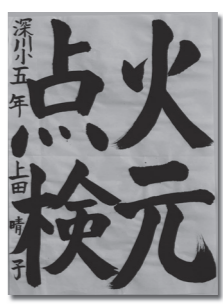 火元
点検
深川小五年 上田晴子